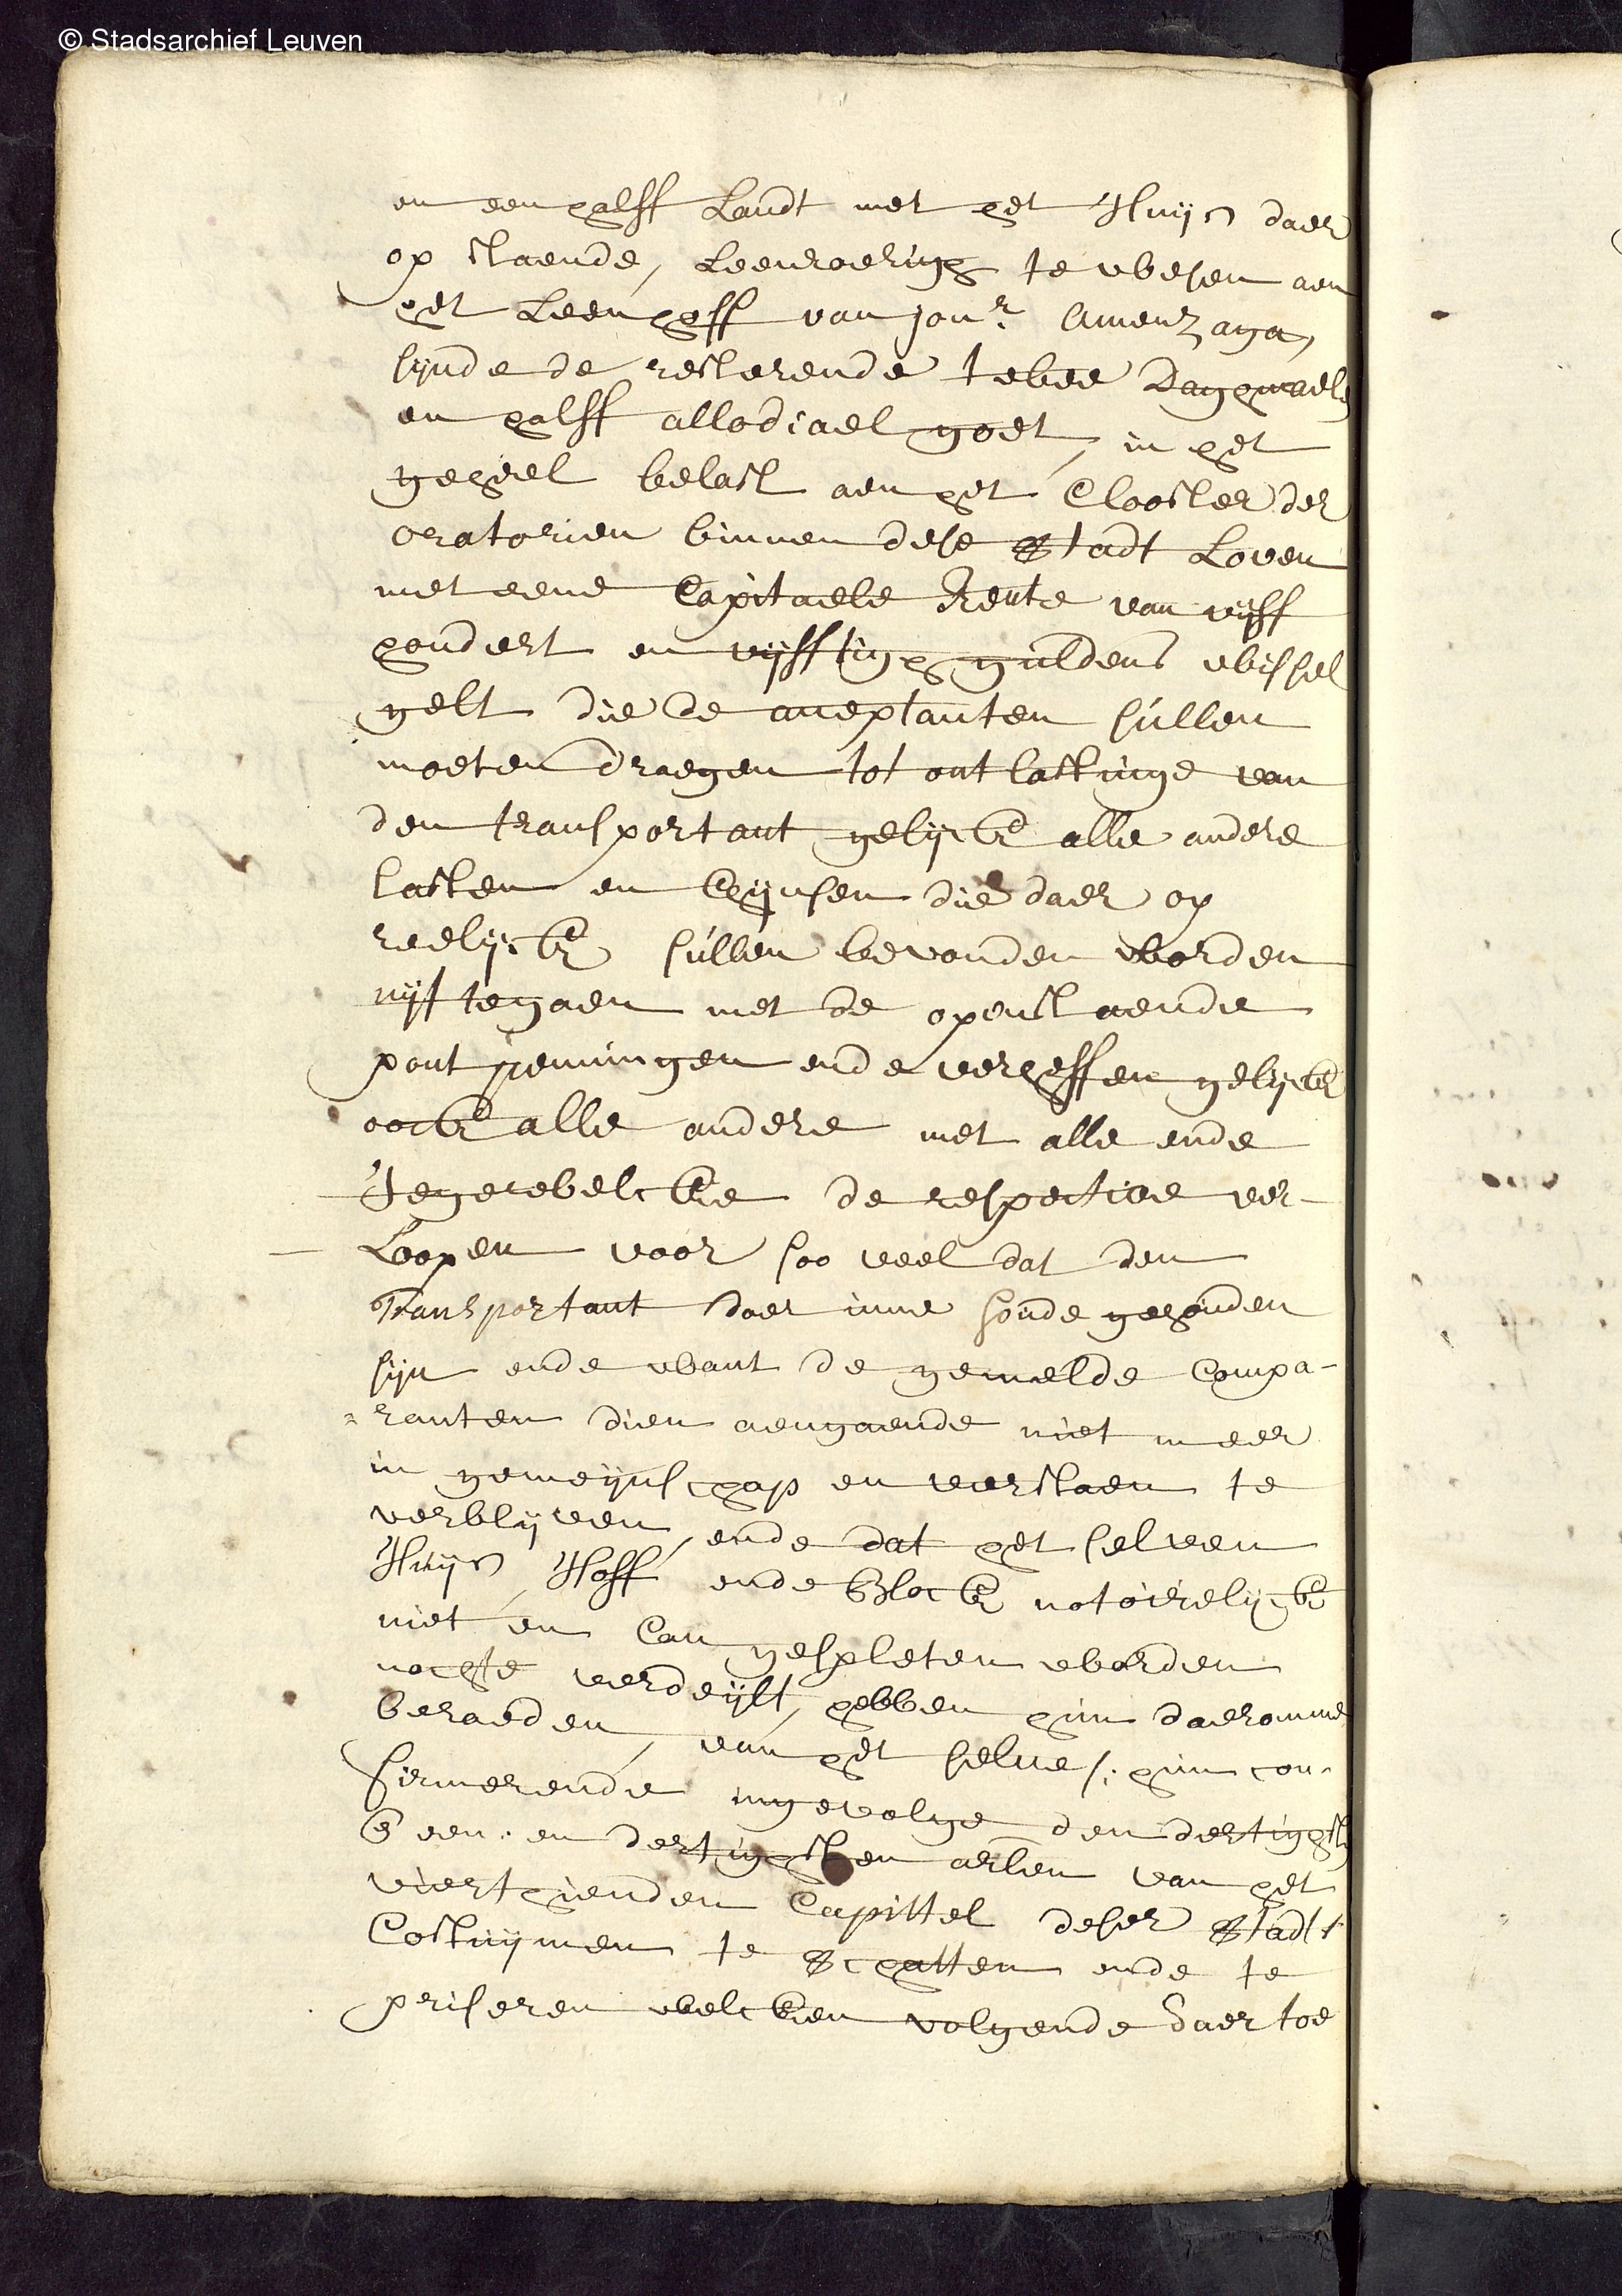 © Stadsarchief Leuven
en een halff Landt met het Huijs daer
op staende, Leenroerigh te wesen aen
het Leenhoff van jonr. Amenzaga,
sijnde de resterende twee Daghmaele
en halff allodiael goet, in het
geheel belast aen het Clooster der
oratorien binnen dese Stadt Loven
met eene Capitaele Rente van vijff
hondert en vijfftigh guldens wissel
gelt die de acceptanten sullen
moeten draegen tot ontlastinge van
den transportant gelijck alle andere
lasten en Chijnsen die daer op
reelijck sullen bevonden worden
uijt te gaen met de openstaende
pontpenningen ende verheffen gelijck
oock alle andere met alle ende
Jegewelcke de respective ver-
Loopen voor soo veel dat den
Transportant daer inne soude gehouden
sijn ende want de gemelde Compa-
ranten dien aengaende niet meer
in gemeijnschap en verstaen te
verblijven, ende dat het selven
Huijs, Hoff ende Block notoirelijck
niet en Can gespleten worden
nochte verdeijlt, hebben hun daeromme
beraeden, van het selve /: hun con-
firmerende ingevolge den dertighste
& een en dertighsten arlen van het
vierthienden Capittel deser Stadts
Costuijmen te Schatten ende te
priseren welcken volgende daer toe